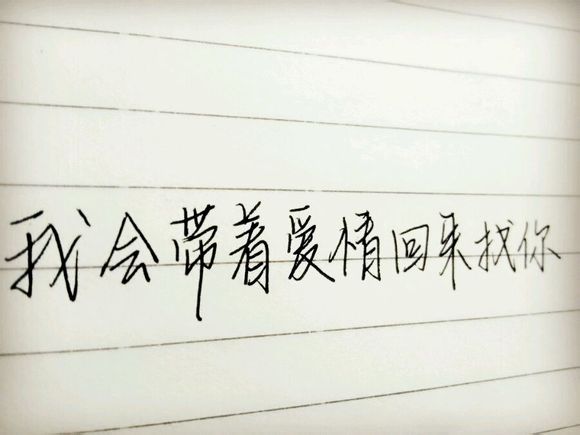 我会带着爱情回来找你